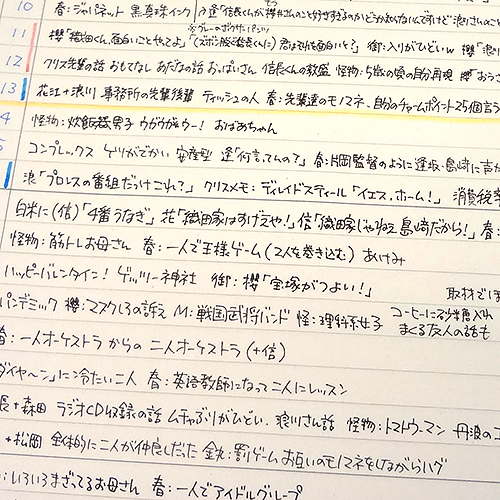 10 春：ジャパネット 黒真珠インク
11 櫻「織田くん、面白いことやってよ」
12 クリス先輩の話 おもてなし あだなの話 おっぱいさん 信長くんの教盛 怪物：5歳の頃の自分再現 櫻
13 花江＋浪川 事務所の先輩後輩 ティッシュの人 春：先輩達のモノマネ、自分のチャームポイント25個言う
4 怪物：炊飯器男子 ウガウガウー！ おばあちゃん
コンプレックス ゲリがでかい 安産型 逢「何言ってんの？」 春：片岡監督のように逢坂、島崎に声か
浪「プロレスの番組だっけこれ？」 クリスメモ：ディレイドスティール 「イエス、ホーム！」 消費税率
白米に（信）「4番うなぎ」 花「織田家はすげえや！」 信「織田家じゃねえ島崎だから！」 春：
怪物：筋トレお母さん 春：一人で王様ゲーム（2人を巻き込む） あけみ
ハッピーバレンタイン！ ゲッツー神社 御：櫻「宝塚がつよい！」 取材では
パンデミック 櫻：マスクしろの訴え M：戦国武将バンド 怪：理科系女子 コーヒーに砂糖入れまくる友人の話も
春：一人オーケストラからの 二人オーケストラ（＋信）
ダイヤ〜ン」に冷たい二人 春：英語教師になって二人にレッスン
長＋森田 ラジオCD収録の話 ムチャぶりがひどい、浪川さん話 怪物：トマトウーマン 丹波の
＋松岡 全体的に二人が仲良しだった 金丸：罰ゲーム お互いのモノマネをしながらハグ
：いろいろまざってるお母さん 春：一人でアイドルグループ